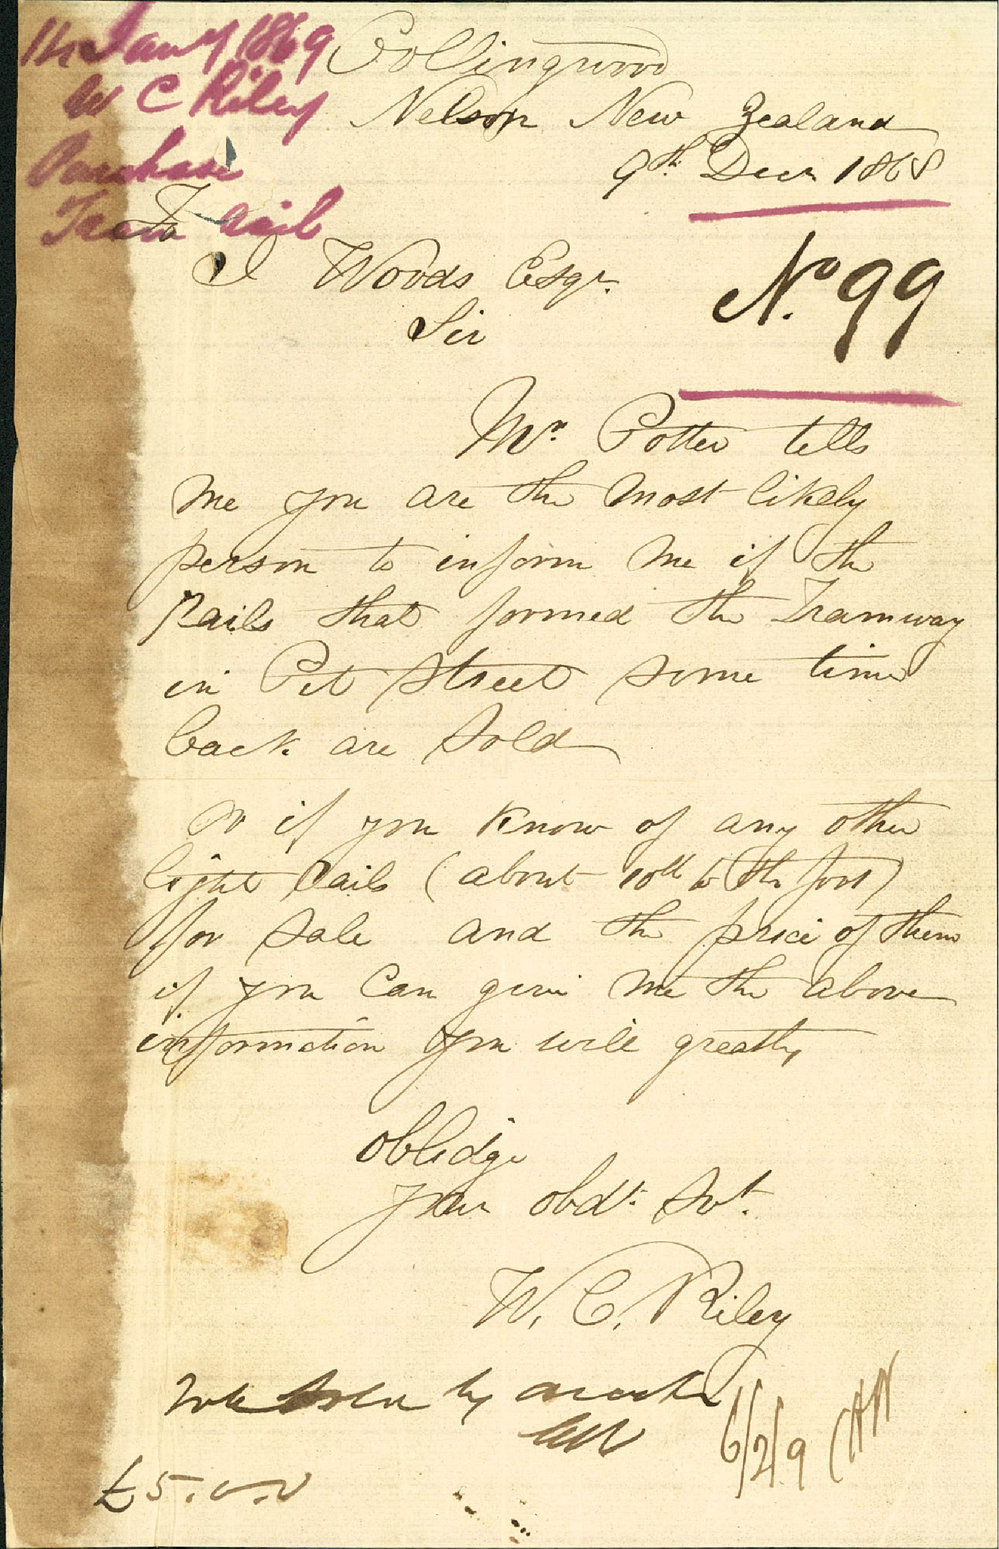 14 Jany 1869
W C Riley
Purchase
Tram Rail
Collingwood
Nelson New Zealand
9th. Decr 1868
To
J Woods Esqr.
Sir
No. 99
Mr. Potter tells
me you are the most likely
person to inform me if the
Rails that formed the Tramway
in Pit Street some time
back are Sold
Or if you Know of any other
light Rails (about 10lb to the foot)
for Sale and the price of them
if you Can give me the above
information you will greatly
oblidge
your obdt. Svt.
W. C. Riley
sold by
6/2/9
£5.0.0